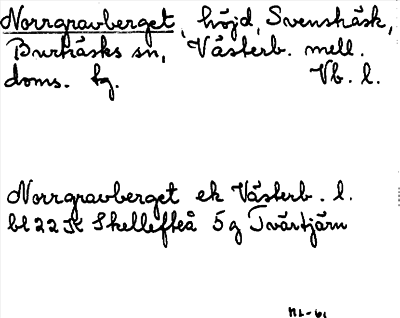 Norrgravberget, höjd, Svensträsk,
Burträsks sn, Västerb. mell.
doms. tg. Vb. l.
Norrgravberget ek Västerb. l.
bl 22 K Skellefteå 5g Tvärtjärn